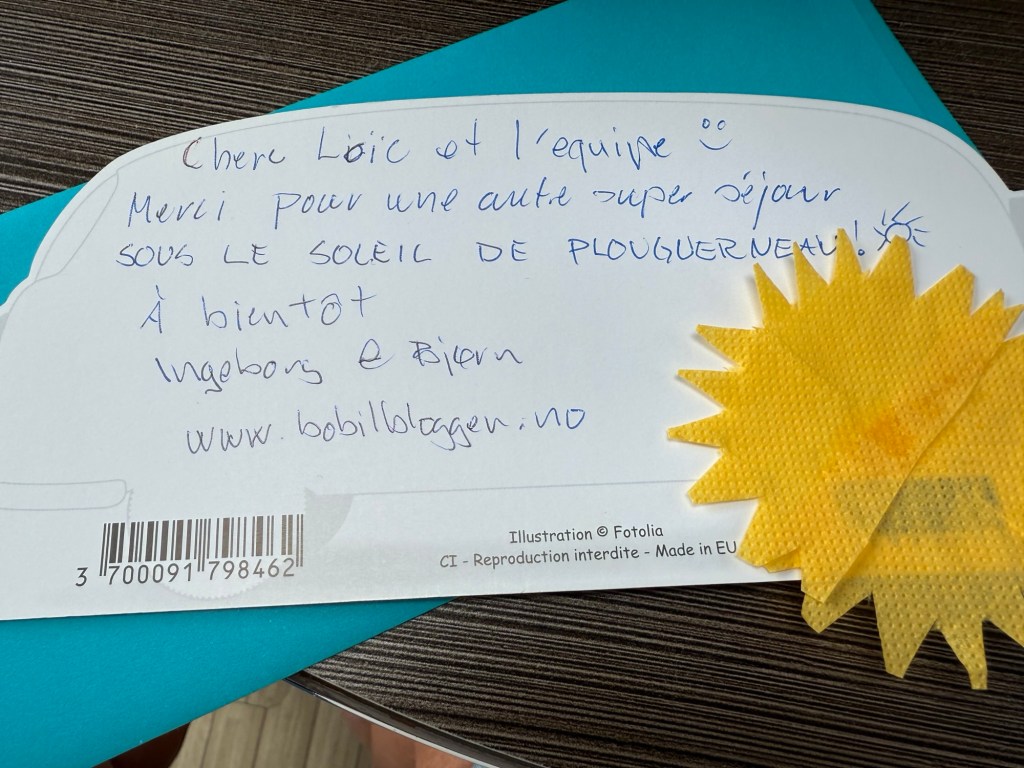 Cherc Loïc et l'equipe
Merci pour une autre super séjour
SOUS LE SOLEIL DE PLOUGUERNEAU!
À bientôt
Ingeborg & Bjørn
www.bobilbloggen.no
Illustration © Fotolia
CI - Reproduction interdite - Made in EU
3 700091 798462